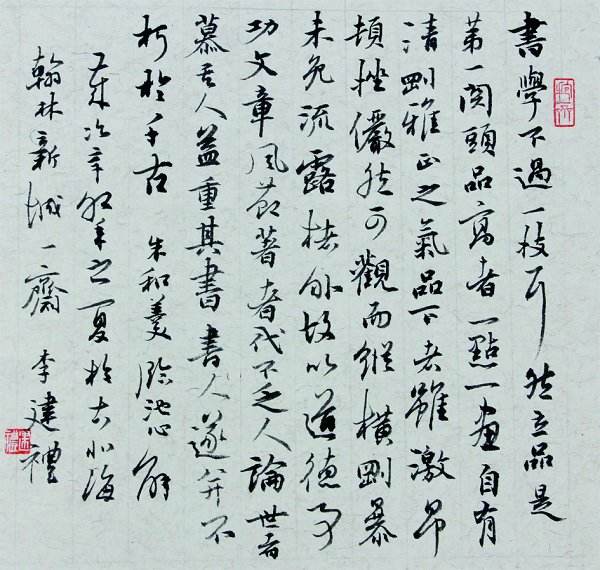 書學不過一技耳然立品是
第一関頭品高者一點一畫自有
清剛雅正之氣品下者雖激昂
頓挫儼然可觀而縱橫剛暴
未免流露楮外故以道德事
功文章風節著者代不乏人論世者
慕其人益重其書書人遂并不
朽於千古 朱和羹臨池心解
歲次辛卯年之夏於古北海
翰林新城一齋 李建禮